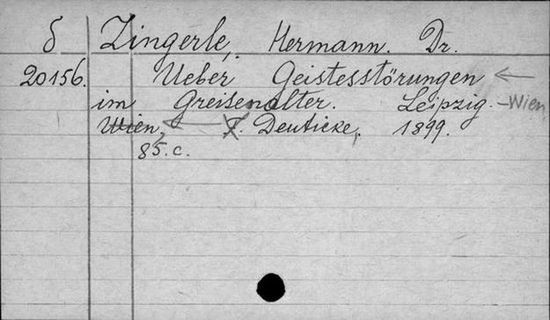 δ Zingerle, Hermann. Dr.
20156. Ueber Geistesstörungen
im Greisenalter. Leipzig. - Wien
Wien, F. Deuticke, 1899.
85. c.